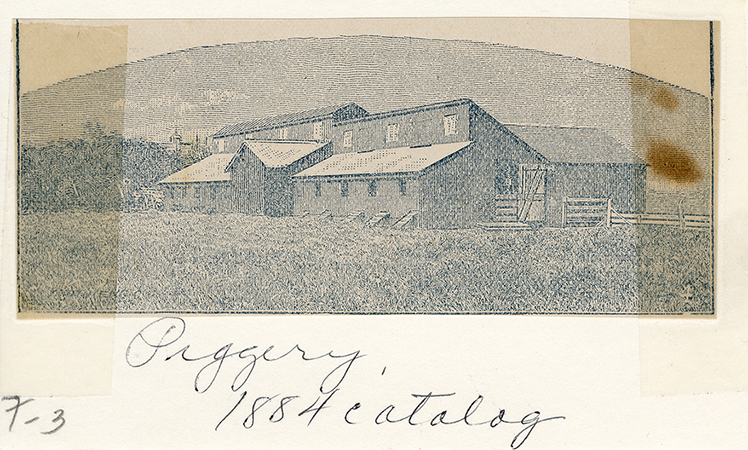 Piggery,
1884 catalog
F-3